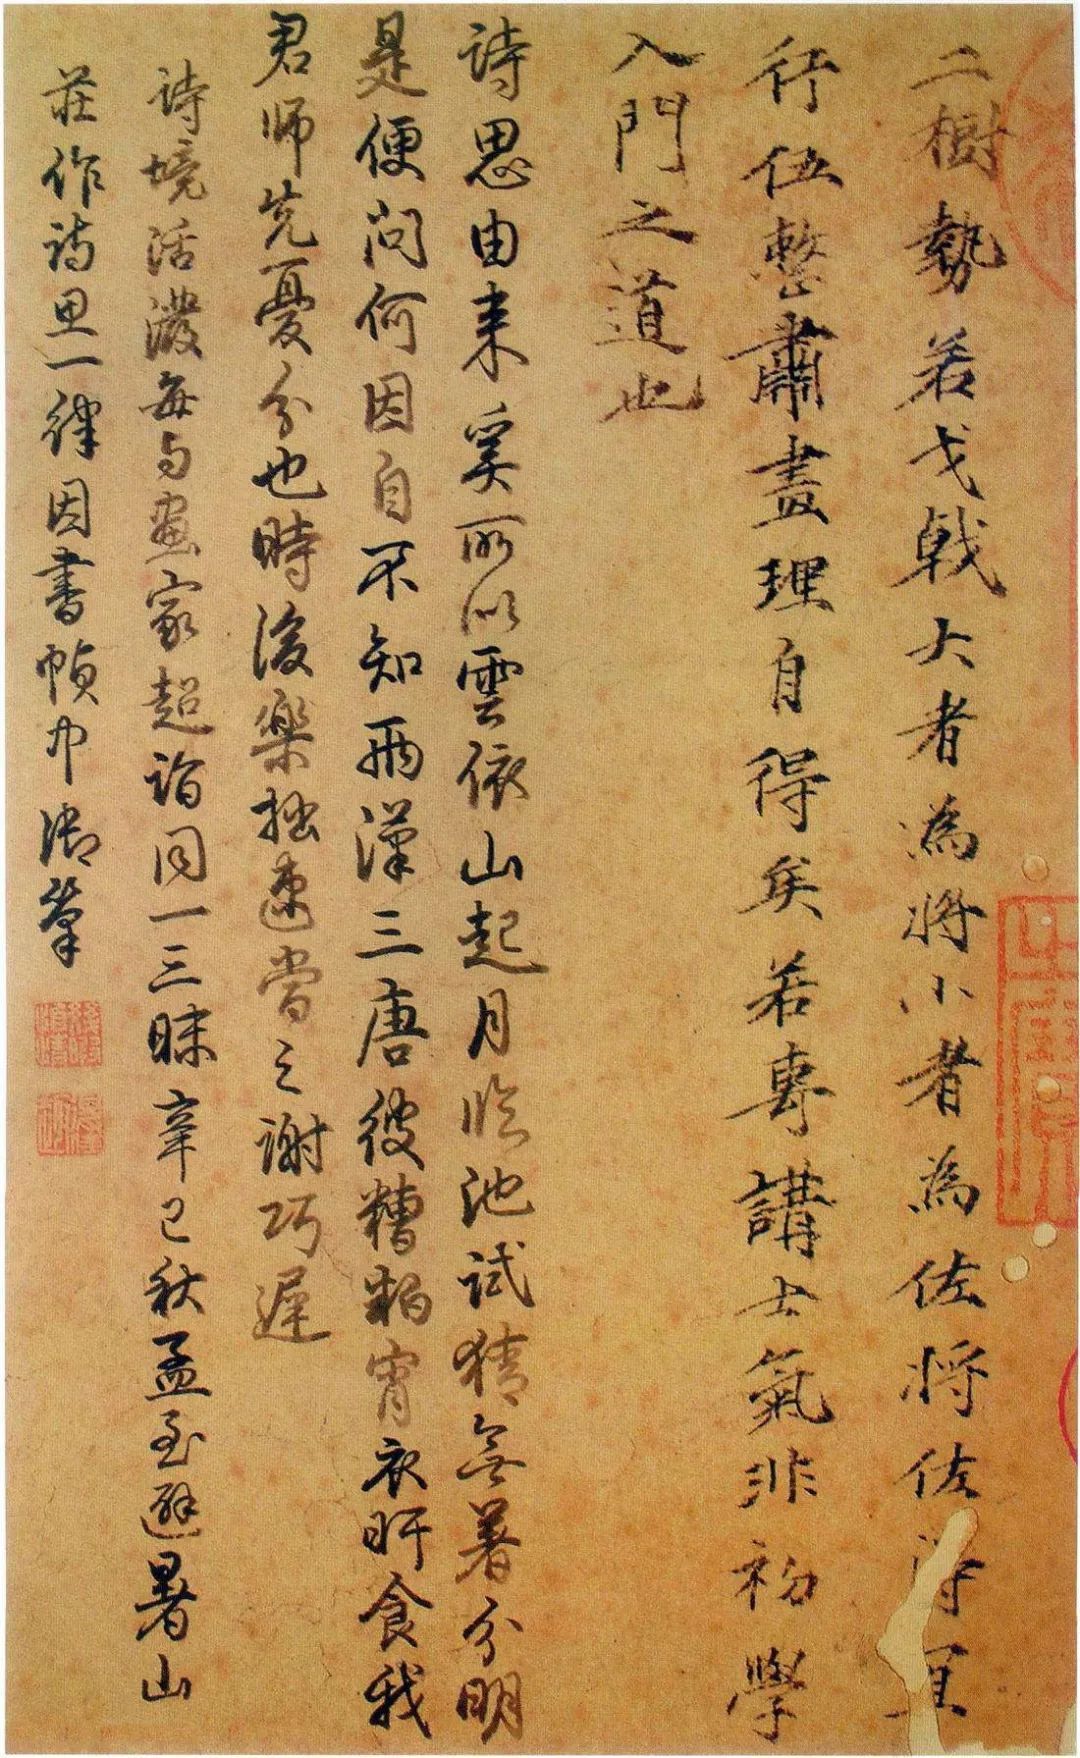 二樹勢若戈戟大者為將小者為佐將佐得宜
行伍整肅畫理自得矣若專講士氣非初學
入門之道也
詩思由来奚所以雲依山起月臨池試猜無著分明
是便問何因自不知兩漢三唐彼糟粕宵衣旰食我
君師先憂分也時後樂拙速當之謝巧遲
詩境活潑每與畫家超詣同一三昧辛巳秋孟至避暑山
莊作詩思一律因書幀中御筆